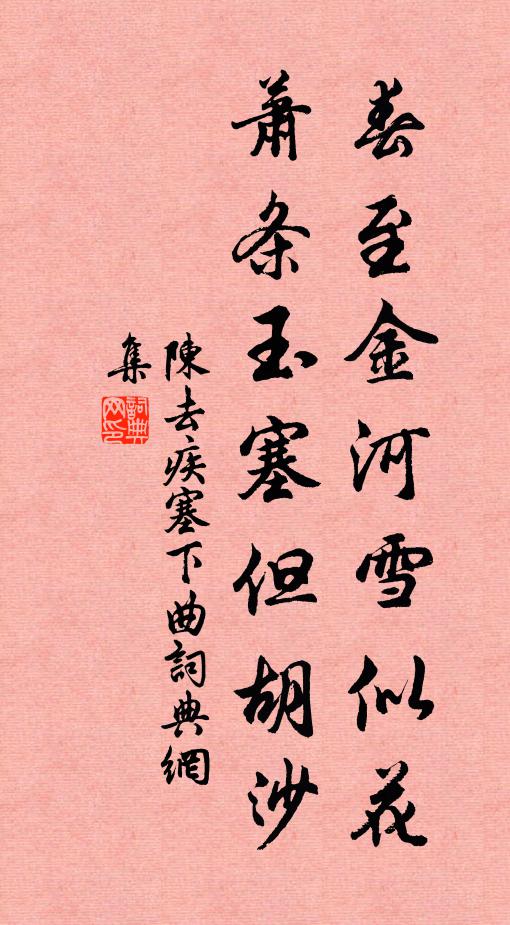 春至金河雪似花
蕭条玉塞但胡沙
陳去疾塞下曲詞典網
集
詞典
网印